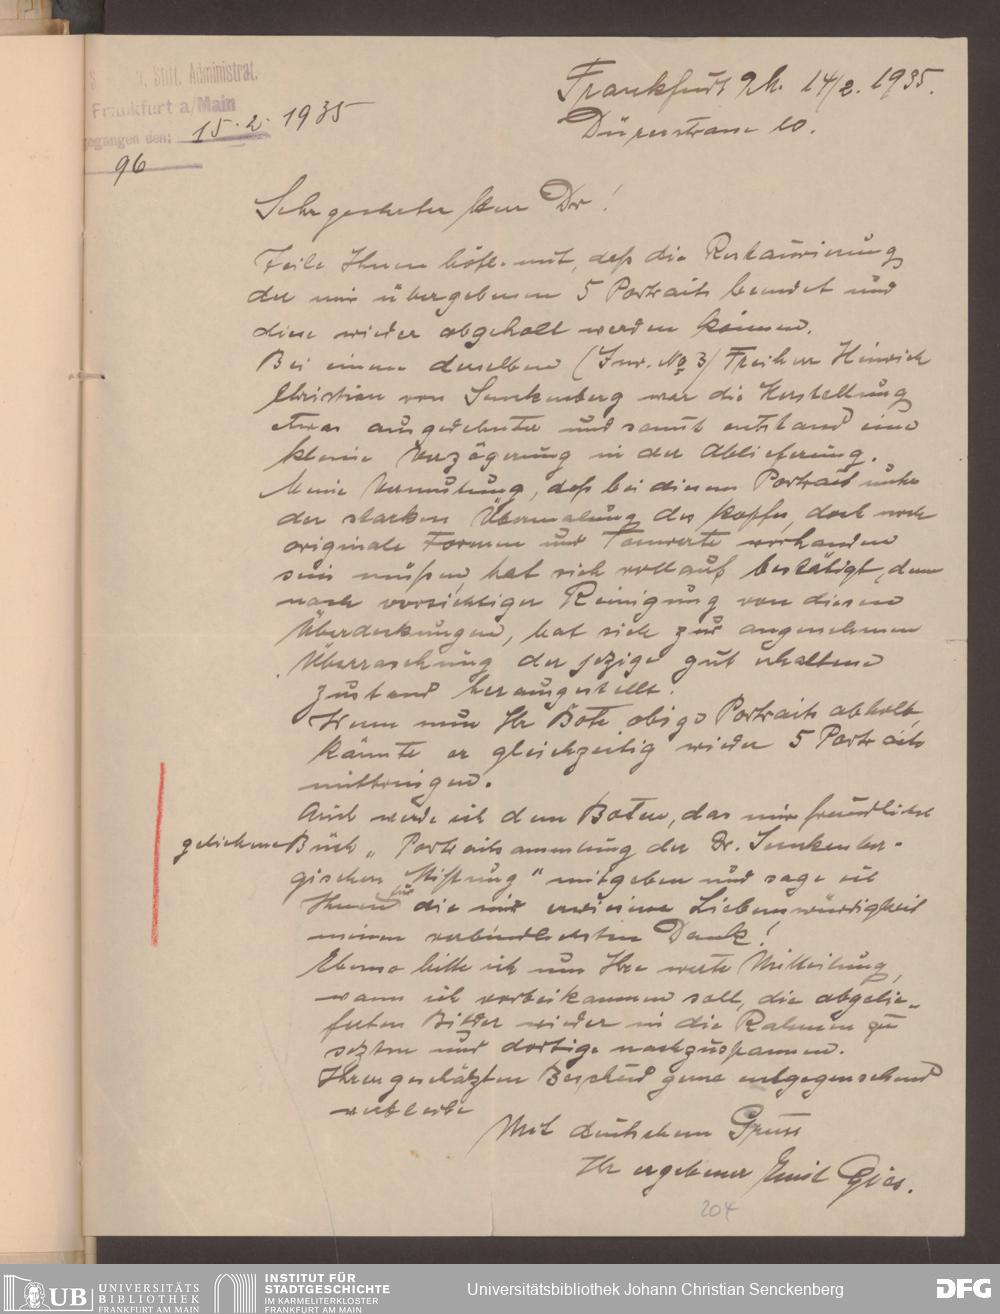 Stift. Administrat.
Frankfurt a/Main
gegangen den: 15. 2. 1935
96
Frankfurt M. 14/2. 1935.
Dürerstrasse 10.
Sehr geehrter Herr Dr!
Teile Ihnen höfl. mit, daß die Restaurierung
der mir übergebenen 5 Portraits beendet und
diese wieder abgeholt werden können.
Bei einem derselben (Inv. No 3) Freiherr Heinrich
Christian von Senckenberg war die Herstellung
etwas ausgedehnter und somit entstand eine
kleine Verzögerung in der Ablieferung.
Meine Vermutung, daß bei diesem Portrait unter
der starken Übermalung des Kopfes, doch noch
originale Formen und Tonwerte vorhanden
sein müßen, hat sich vollauf bestätigt, denn
nach vorsichtiger Reinigung von diesen
Überdeckungen, hat sich zur angenehmen
Überraschung der jezige gut erhaltene
Zustand herausgestellt.
Wenn nun Ihr Bote obige Portraits abholt,
könnte er gleichzeitig wieder 5 Portraits
mitbringen.
Auch werde ich dem Boten, das mir freundlichst
geliehene Buch „Portraitsammlung der Dr. Senckenber-
gischen Stiftung" mitgeben und sage ich
Ihnen für die mir erwiesene Liebenswürdigkeit
meinen verbindlichsten Dank!
Ebenso bitte ich um Ihre werte Mitteilung,
wann ich vorbeikommen soll, die abgelie-
ferten Bilder wieder in die Rahmen zu
setzen und dortige nachzuspannen.
Ihren geschätzten Bescheid gerne entgegensehend
verbleibe
Mit deutschem Gruss
Ihr ergebener Emil Gies.
204
UB UNIVERSITÄTS
BIBLIOTHEK
FRANKFURT AM MAIN
INSTITUT FÜR
STADTGESCHICHTE
IM KARMELITERKLOSTER
FRANKFURT AM MAIN
Universitätsbibliothek Johann Christian Senckenberg
DFG